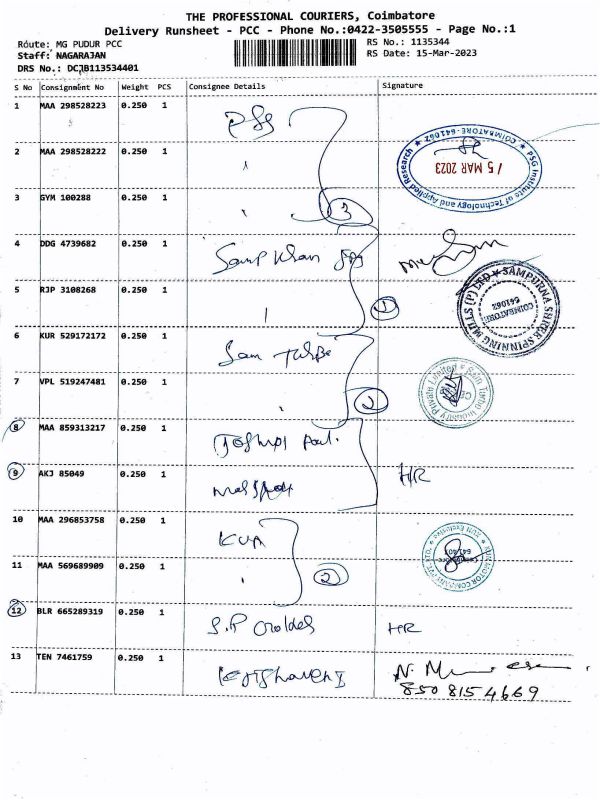 THE PROFESSIONAL COURIERS, Coimbatore
Delivery Runsheet - PCC - Phone No.:0422-3505555 - Page No.:1
Route: MG PUDUR PCC
Staff: NAGARAJAN
DRS No.: DCJB113534401
RS No.: 1135344
RS Date: 15-Mar-2023
S No Consignment No Weight PCS Consignee Details Signature
1 MAA 298528223 0.250 1
2 MAA 298528222 0.250 1
PSG Institute of Technology and Applied Research ★ COIMBATORE-641062 ★
15 MAR 2023
3 GYM 100288 0.250 1 3
4 DDG 4739682 0.250 1
5 RJP 3108268 0.250 1 1
SAMPURNA SHREE SPINNING MILLS (P) LTD ★
COIMBATORE
641062
6 KUR 529172172 0.250 1
7 VPL 519247481 0.250 1 2
Private Limited
8 MAA 859313217 0.250 1
9 AKJ 85049 0.250 1 HR
10 MAA 296853758 0.250 1
11 MAA 569689909 0.250 1 2
12 BLR 665289319 0.250 1 S.P HR
13 TEN 7461759 0.250 1 N.
850 8154669